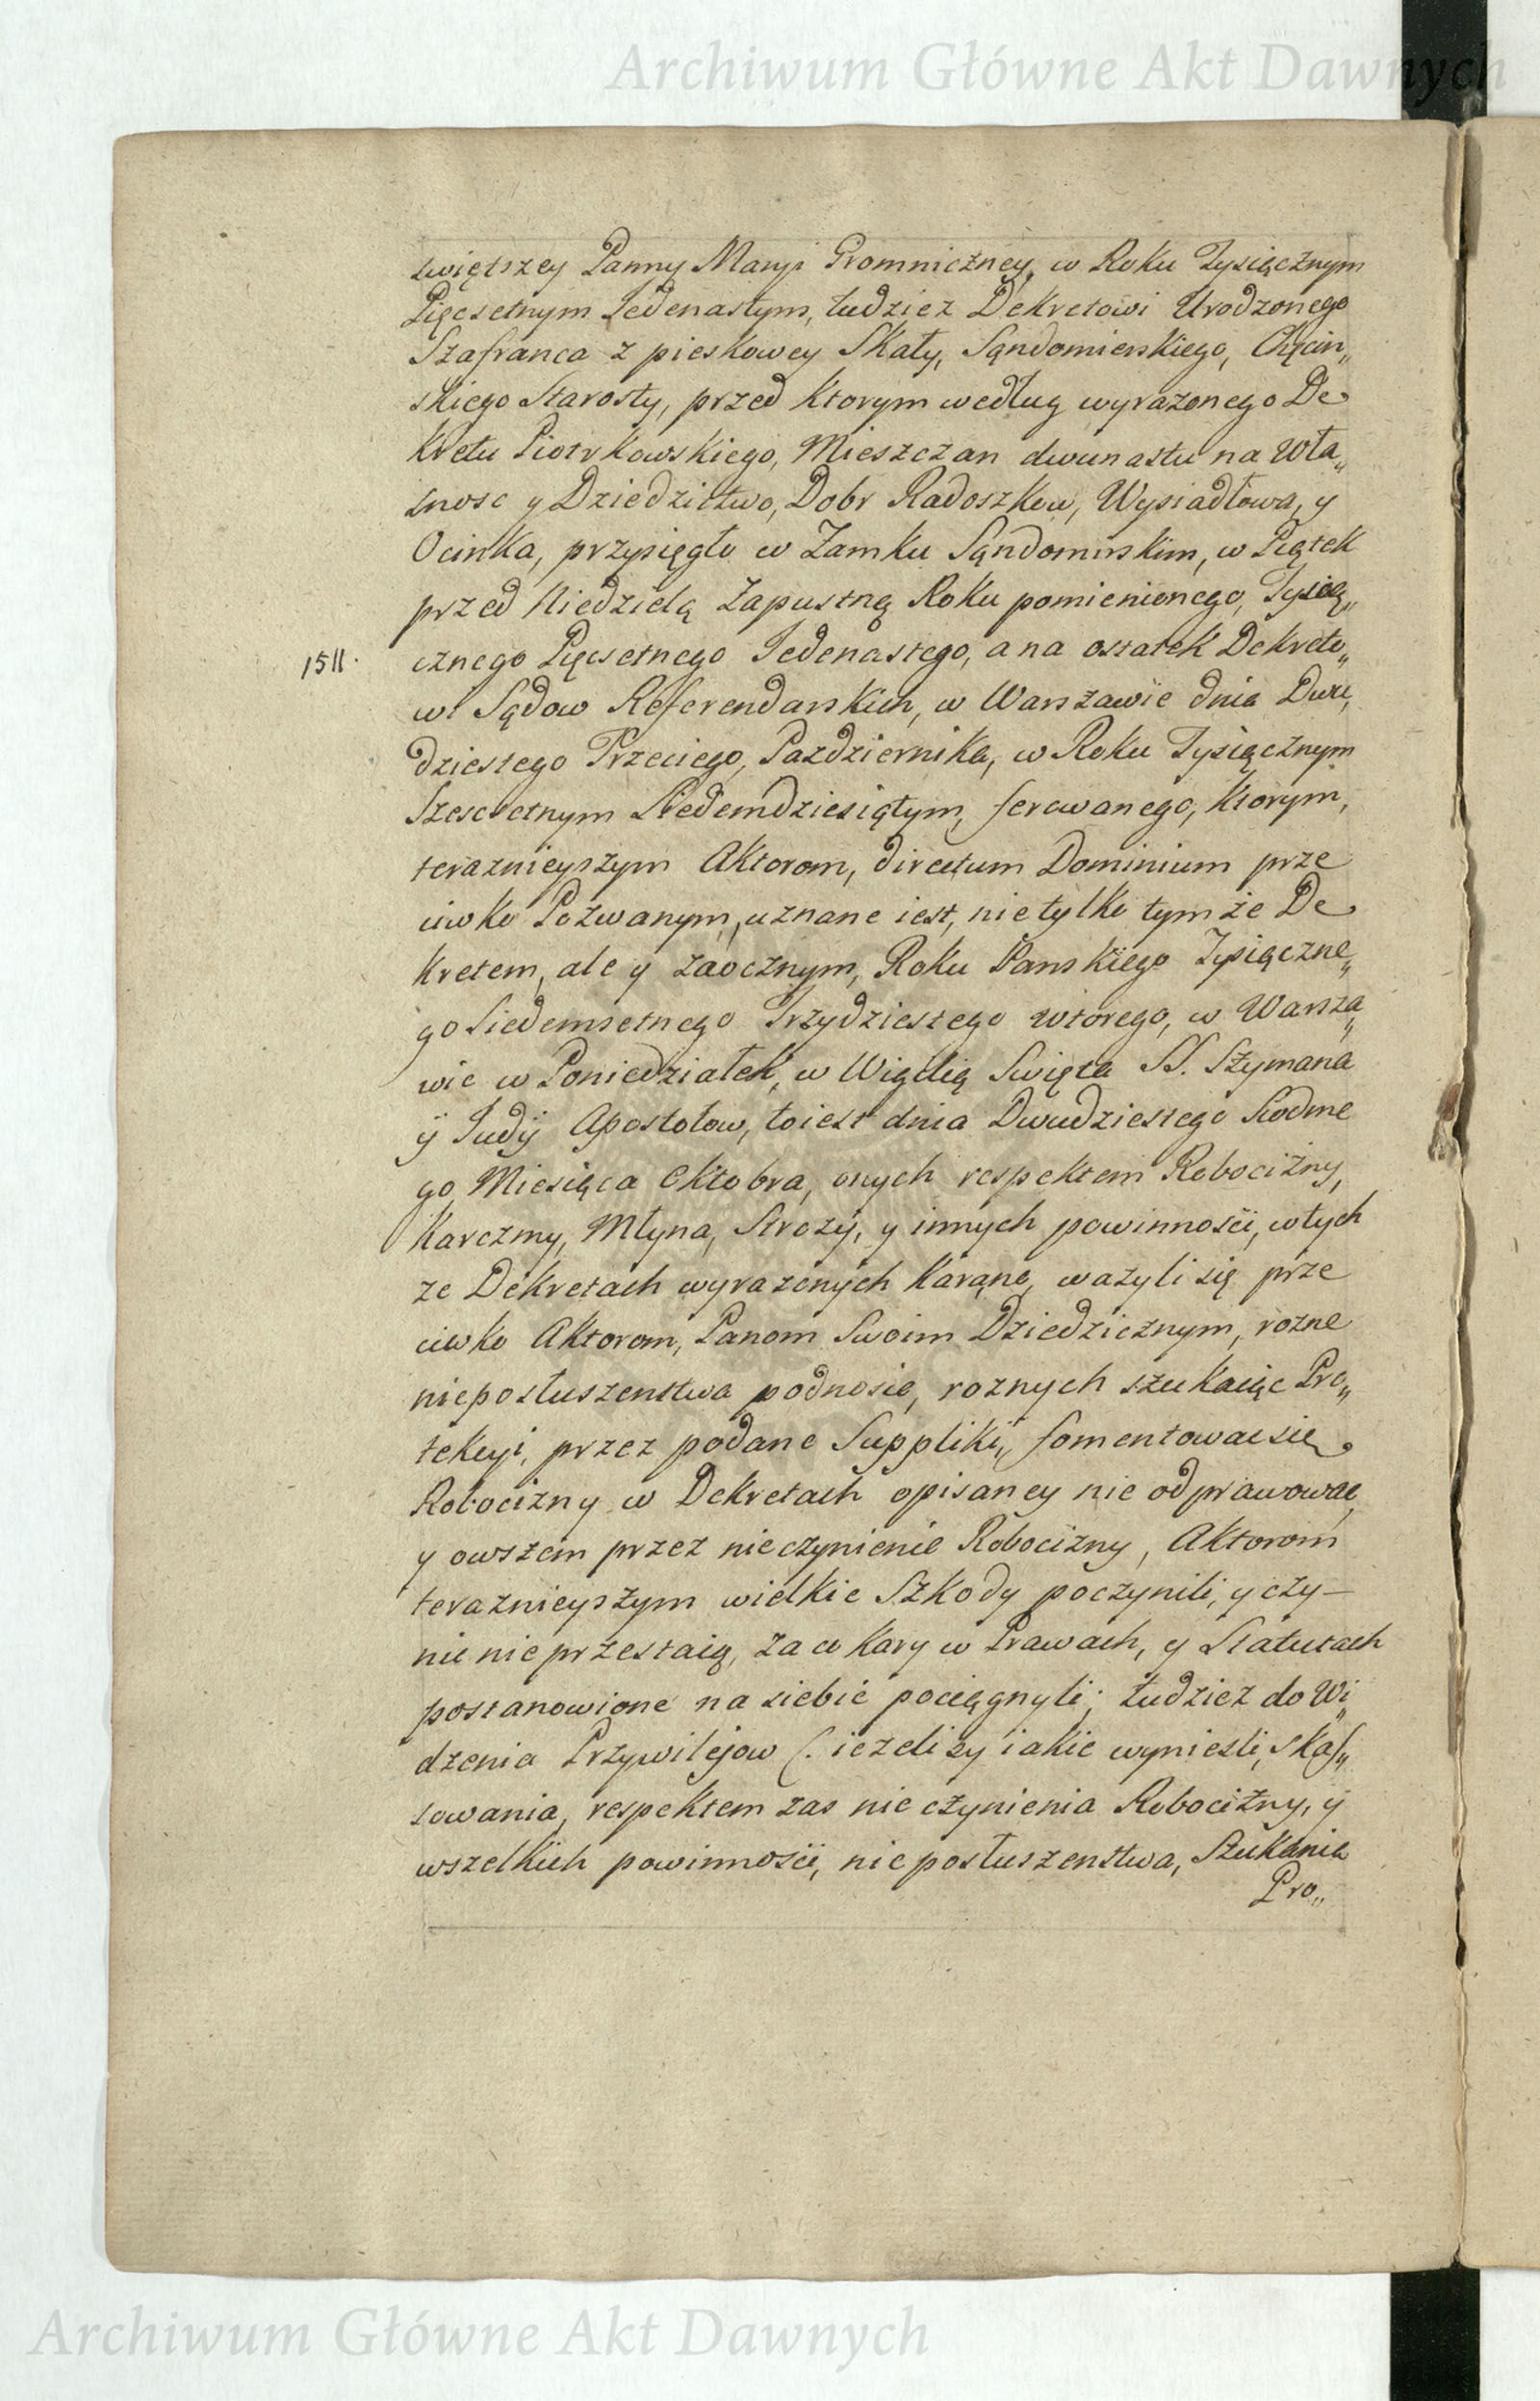 Archiwum Główne Akt Dawnych
swiętszey Panny Maryi Gromniczney, w Roku Tysięcznym
Pięcsetnym Jedenastym, tudziez Dekretowi Urodzonego
Szafranca z pieskowey Skały, Sąndomierskiego, Chęcin„
skiego Starosty, przed ktorym według wyrazonego De
kretu Piotrkowskiego, Mieszczan dwunastu na Wła„
snosc y Dziedzictwo, Dobr Radoszkow, Wysiadłowa, y
Ocinka, przysięgło w Zamku Sąndomirskim, w Piątek
przed Niedzielą Zapustną Roku pomienionego, Tysią„
1511. cznego Pięcsetnego Jedenastego, a na ostatek Dekreto„
wi Sądow Referendarskich, w Warszawie dnia Dwu„
dziestego Trzeciego, Pazdziernika, w Roku Tysiącznym
Szescsetnym Siedemdziesiątym, ferowanego, ktorym,
teraznieyszym Aktorom, directum Dominium prze
ciwko Pozwanym, uznane iest, nie tylko tymże De
kretem, ale y zaocznym, Roku Panskiego Tysiączne„
go Siedemsetnego Trzydziestego wtorego, w Warsza„
wie w Poniedziałek, w Wigilią Swięta SS. Szymana
ÿ Judÿ Apostołow, to iest dnia Dwudziestego Siodme
go Miesiąca Oktobra, onych respektem Robocizny,
Karczmy, Młyna, Strozy, y innych powinności, w tych
ze Dekretach wyrazonych karano, wazyli się prze
ciwko Aktorom, Panom Swoim Dziedzicznym, rozne
nieposłuszenstwa podnosic, roznych szukaiąc Pro„
tekcyi, przez podane Suppliki, fomentowac się
Robocizny w Dekretach opisaney nie odprawowac,
y owszem przez nieczynienie Robocizny, Aktorom
teraznieyszym wielkie Szkody poczynili, y czy–
nic nie przestaią, za co kary w Prawach, y Statutach
postanowione na siebie pociągnyli; tudziez do Wi„
dzenia Przywilejow (. iezeliby iakie wyniesli, skas„
sowania, respektem zas nie czynienia Robocizny, ÿ
wszelkich powinności, nieposłuszenstwa, Szukania
Pro„
Archiwum Główne Akt Dawnych